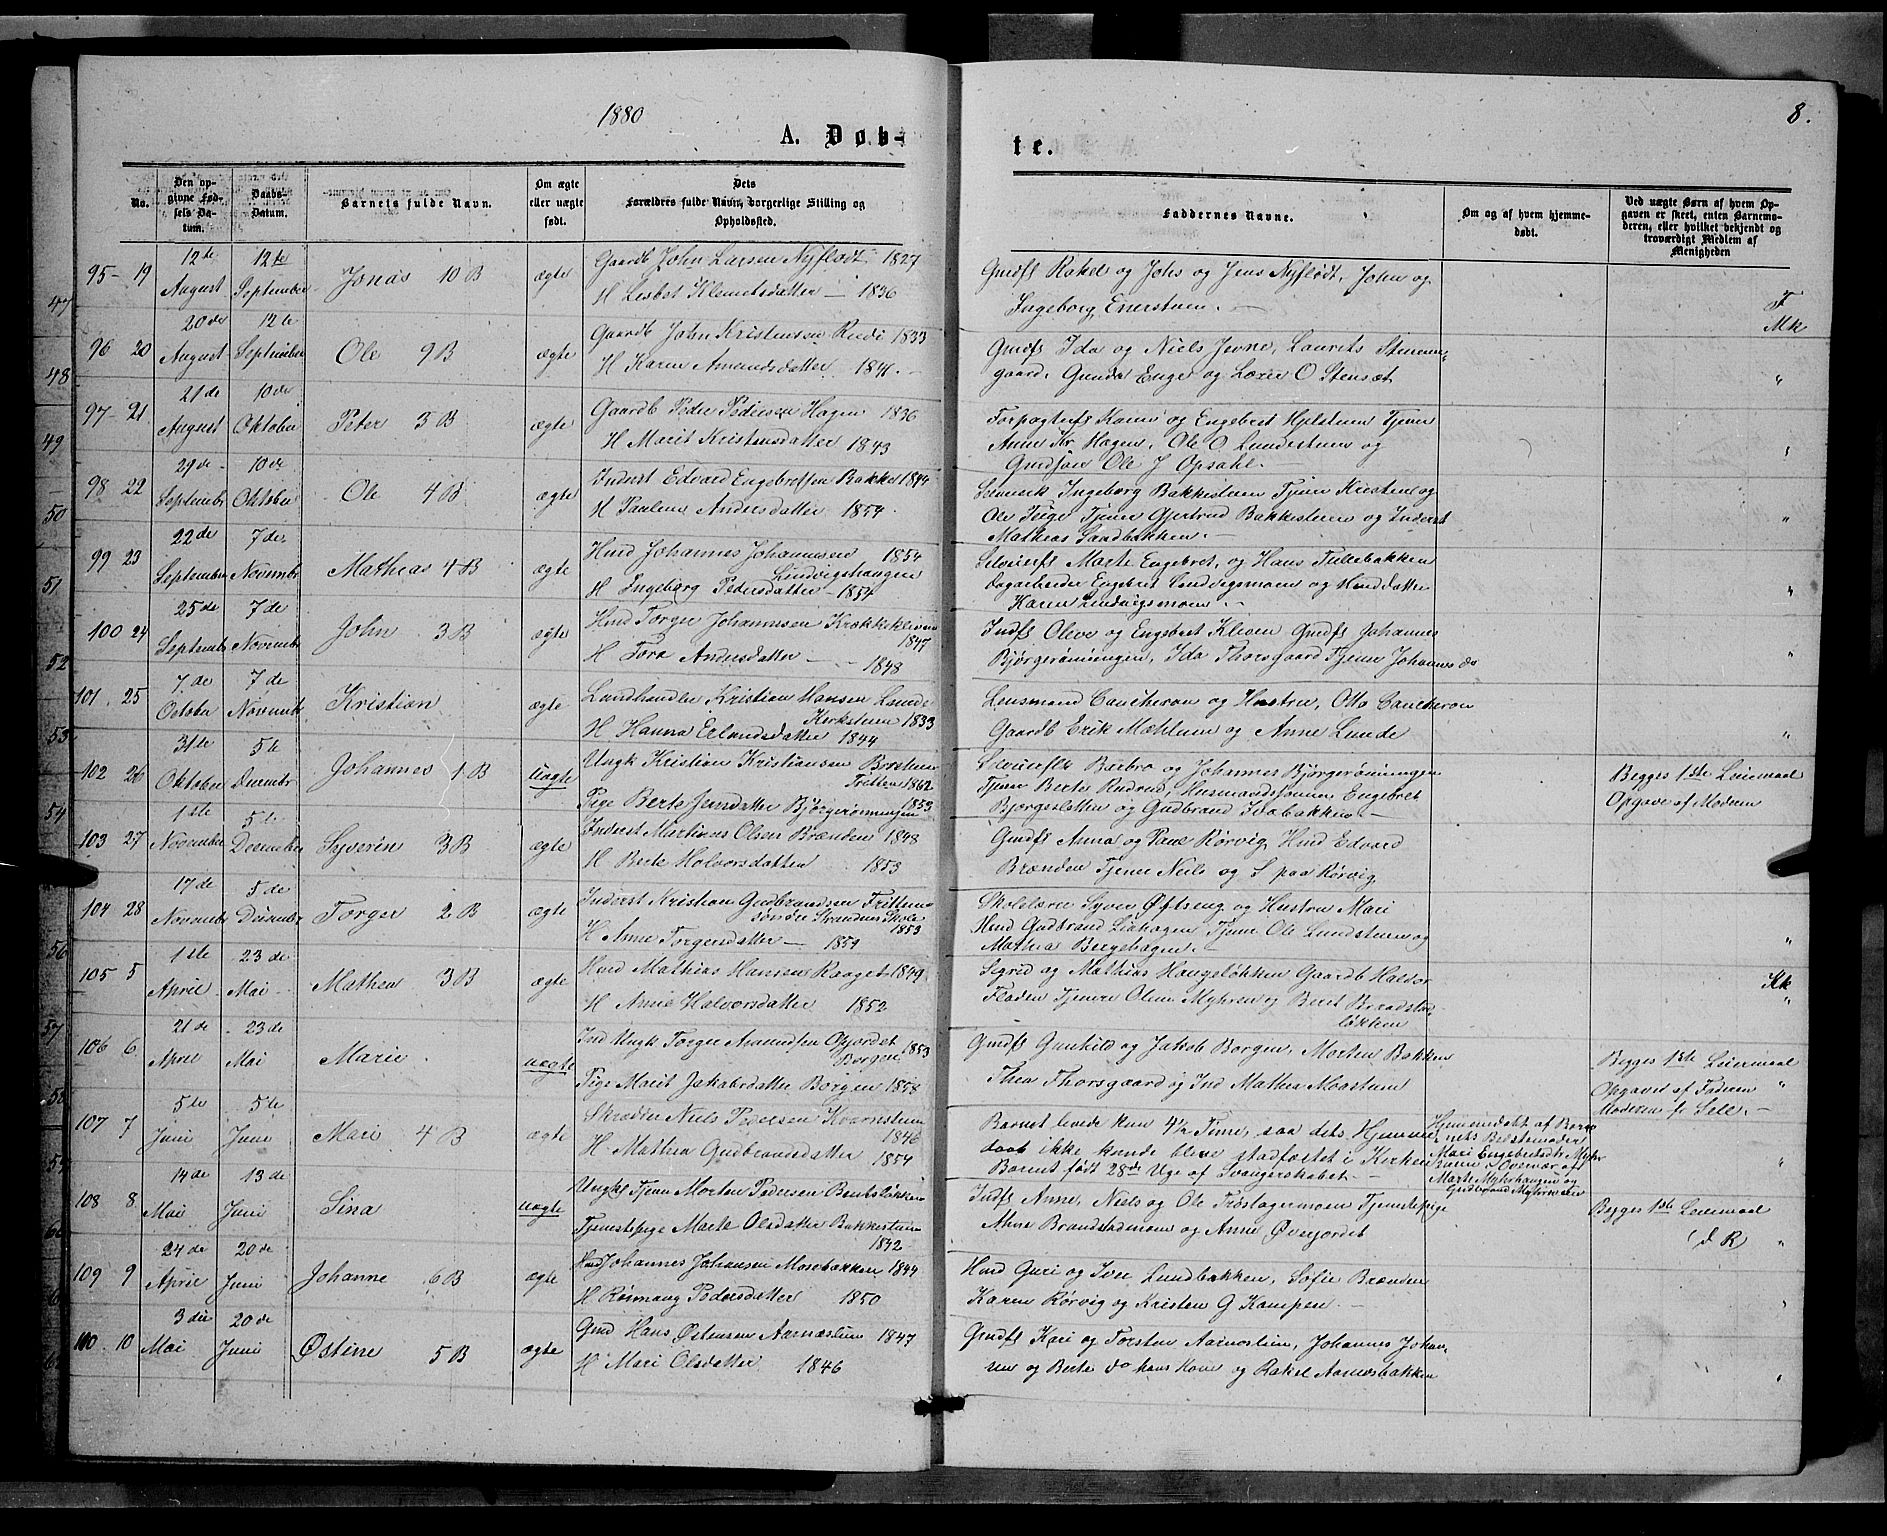 1880
8.
A. Døb-
te.
No.
Den op-
givne Fød-
sels Da-
tum.
Daabs-
Datum.
Barnets fulde Navn.
Om ægte
eller uægte
født.
Dets
Forældres fulde Navn, borgerlige Stilling og
Opholdssted.
Faddernes Navne.
Om og af hvem hjemme-
døbt.
Ved uægte Børn af hvem Op-
gaven er skeet, enten Barnemo-
deren, eller hvilket bekjendt og
troværdigt Medlem af
Menigheden
95 - 19 12te August 12te September Jonas 10 B ægte
Gaardb John Larsen Nyflødt 1827
H Lisbet Klemetsdatter - 1836
Gmdfk Rakel og Johs og Jens Nyflødt, John og
Ingeborg Enerstuen. -
F
Mk
96 20 20de August 12te September Ole 9 B ægte
Gaardb John Kristensen Rudi 1833
H Karen Amundsdatter 1841.
Gmdfk Ida og Niels Jevne, Laurits
gaard, Gunda Enge og O Stensæt
97 - 21 21de August 10de Oktober Peter 3 B ægte
Gaardb Peder Pedersen Hagen 1836
H Marit Kristensdatter 1843
og Engebret Hjelstuen Tjener
Anne Kr. Hagen, Ole O Lundestuen og
Ole J Opsahl. -
98 22 29de September 10de Oktober Ole 4 B ægte
Inderst Edvard Engebretsen Bakke 1844
H Pauline Andersdatter 1854.
Ingeborg Bakkestuen Tjener Kristen og
Ole Tuge Tjener Gjertrud Bakkestuen og Inderst
Mathias Sandbakken. -
99 23 22de September 7de November Mathias 4 B ægte
Hmd Johannes Johannesen 1854
Lindvigshaugen
H Ingeborg Pedersdatter - 1854
Marte Engebret, og Hans Tullebakken
Dagarbeider Engebret Lindvigsmoen og Hmd Datter
Karen Lindvigsmoen. -
100 24 25de September 7de November John 3 B ægte
Hmd Torger Johannesen Krækkekleven
1847
H Tora Andersdatter - - 1848
Indfk Oleve og Engebret Kleven Gmdfk Johannes
Bjørgerønningen, Ida Thorsgaard Tjener Johannes do
101. 25 7de October 7de November Kristian ægte
Landhandler Kristian Hansen Lunde
Kirkestuen 1833
H Hanna Erlandsdatter 1844
Lensmand Caucheron og Hustru, Otto Caucheron
Gaardb Erik Mæhlum og Anne Lunde
102 26 31te Oktober 5te December Johannes 1 B Uægte
Ungk Kristian Kristiansen
Fritten 1862
Pige Berte Jensdatter Bjørgerønningen 1853
Barbro og Johannes Bjørgerønningen
Tjener Berte Rudrud, Husmandssønner Engebret
Bjørgesletten og Gudbrand Ivabakken -
Begges 1ste Leiermaal
Opgave af Moderen
103 27 1ste November 5te December Syverin 3 B ægte
Inderst Martinus Olsen Brænden 1848
H Berte Holvorsdatter 1853
Gmdfk Anna og Paul Rørvig, Hmd Edvard
Brænden Tjener Neils og S paa Rørvig
104 28 17de November 5de December Torger 2 B ægte
Inderst Kristian Gudbrandsen Fritten
søndre Strandens Skole
1853
H Anne Torgersdatter - 1854
Skolelærer Syver Øftseng og Hustru Mari
Hmd Gudbrand Liahagen Tjener Ole Lundstuen og
Mathea Bergehagen. -
105 5 1ste April 23de Mai Mathea 3 B ægte
Hmd Mathias Hansen Kaaget 1849
H Anne Halvorsdatter 1852
Sigrid og Mathias Haugeløkken Gaardb Haldor
Floden Tjener Oline Myhren og Berit Braadstad-
løkken
Kk
106 6 21de April 23de Mai Marie uægte
Ind Ungk Torger Amundsen Opjordet
Borgen 1853
Pige Marit Jakobsdatter Borgen 1858
Gmdfk Gunhild og Jakob Borgen, Morten Bakken
Thea Thorsgaard og Ind Mathea Moastuen
Begges 1ste Leiermaal
Opgaver af Faderen
Moderen
107 7 5te Juni 5te Juni Mari 4 B ægte
Skræder Niels Pedersen Kværnstuen
1846
H. Mathea Gudbrandsdatter 1854
Barnet levede kun 4½ Time, saa dets Hjemme-
daab ikke kunde blive stadfæstet i Kirken
Barnet født 28de Uge af Svangerskabet. -
Hjemmedøbt af Bar-
nets Bestemoder
Mari Engebretsdtr Myhr
Overvær af
Marte Myhrhaugen og
Gudbrand Myhren
108 8 14de Mai 13de Juni Lina uægte
Ungk Tjener Morten Pedersen
Tjenestepige Marte Olsdatter Bakkestuen
1832
Indfk Anne, Niels og Ole Trøstagermoen Tjenestepige
Anne Brandstadmoen og Anne Øvrejordet
Begges 1ste Leiermaal
(d R)
109 9 24de April 20de Juni Johanne 6 B ægte
Hmd Johannes Johansen Mosebakken 1844
H Rønnaug Pedersdatter 1850
Hmd Guri og Iver Lundbakken, Sofie Brænden
Karen Rørvig og Kristen G Kampen. -
100. 10 3die Mai 20de Juni Østine 5 B ægte
Gmd Hans Østensen Aarnæstuen 1847
H Mari Olsdatter 1846
Gmdfk Kari og Torsten Aarnæstuen, Johannes Johan-
nes og Berte do hans Kone og Rakel Aarnæsbakken
47
48
49
50
51
52
53
54
56
57